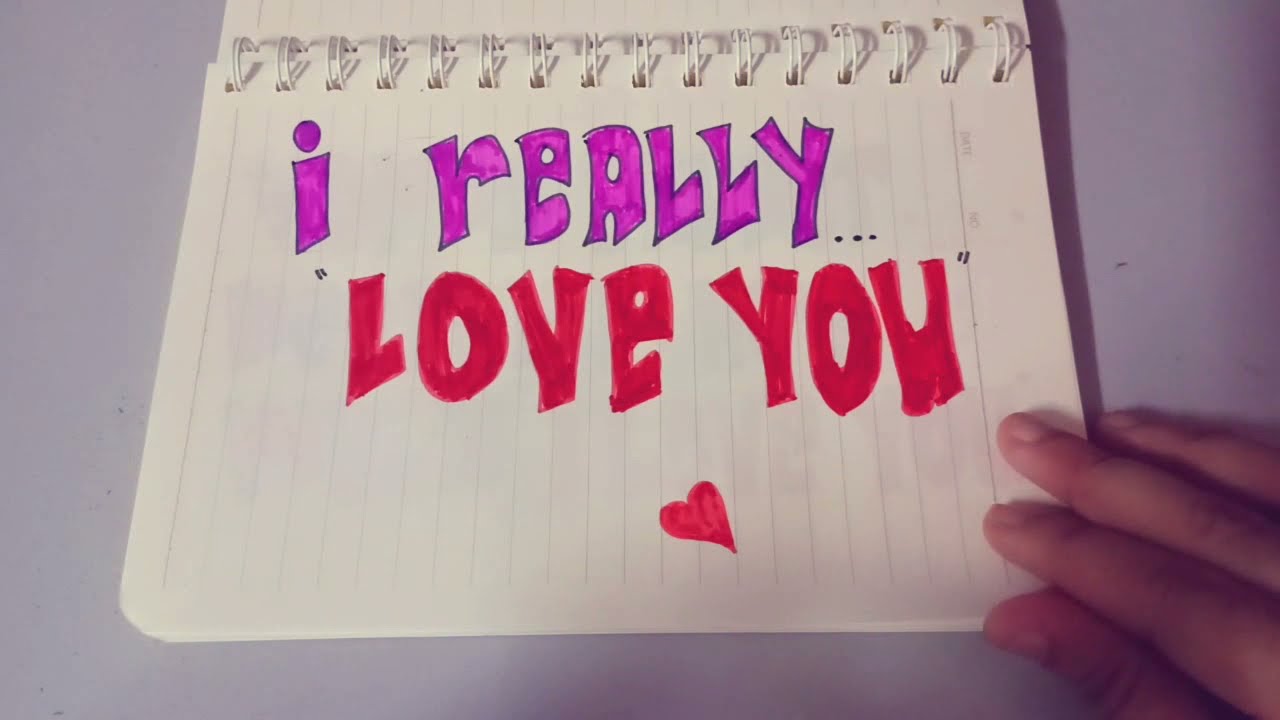 i reALLY...
"LOVe YOU"
DATE
NO